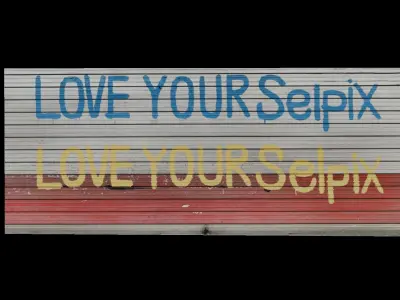 LOVE YOUR Selpix
LOVE YOUR Selpix